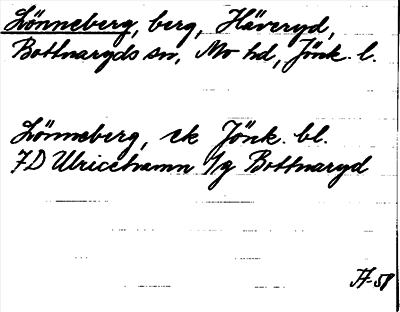 Lönneberg, berg, Häveryd,
Bottnaryds sn, Mo hd, Jönk. l.
Lönneberg, ek Jönk. bl.
7D Ulricehamn 1/g Bottnaryd